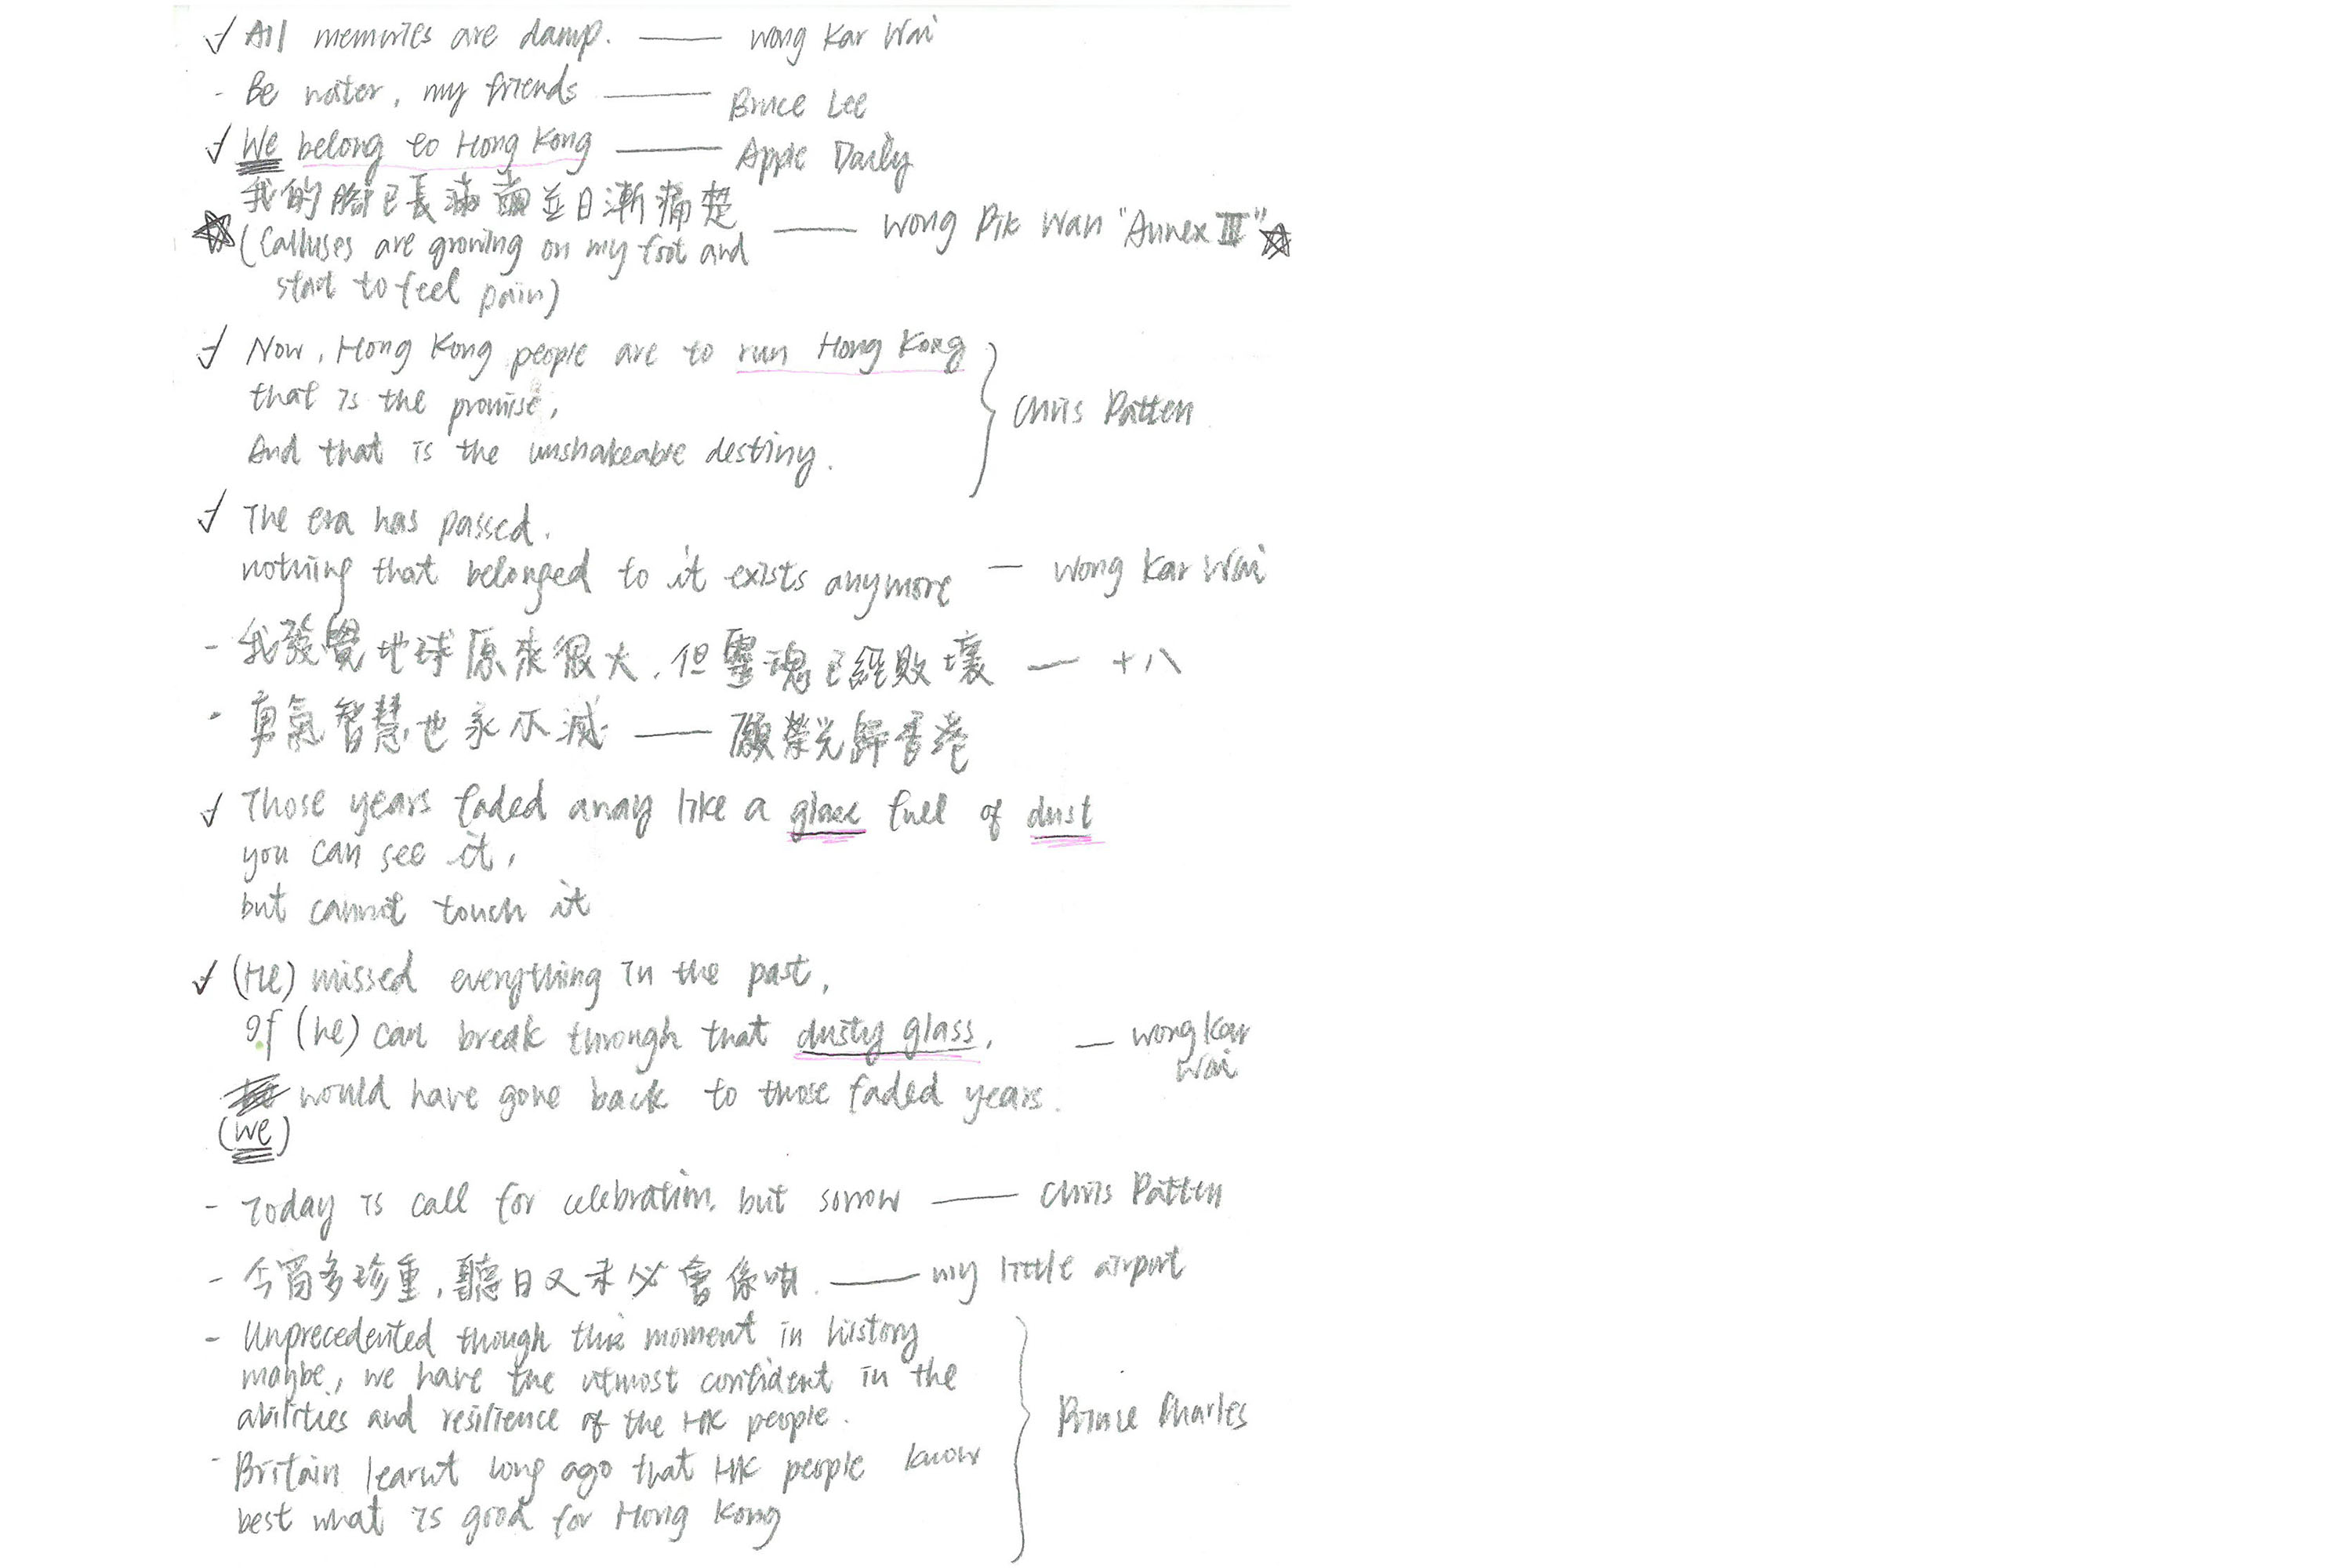 ✓ All memories are damp. —— Wong Kar Wai
- Be water, my friends —— Bruce Lee
✓ We belong to Hong Kong —— Apple Daily
我的腳已長滿繭並日漸痛楚
(Calluses are growing on my foot and —— Wong Pik Wan "Annex III"
start to feel pain)
✓ Now, Hong Kong people are to run Hong Kong
that is the promise,
And that is the unshakeable destiny.
Chris Patten
✓ The era has passed.
nothing that belonged to it exists anymore — Wong Kar Wai
- 我發覺地球原來很大,但靈魂已經敗壞 — 十八
- 勇氣智慧也永不滅 —— 願榮光歸香港
✓ Those years faded away like a glass full of dust
you can see it,
but cannot touch it
✓ (He) missed everything in the past,
If (he) can break through that dusty glass, — Wong Kar
Wai
would have gone back to those faded years.
(we)
- Today is call for celebration, but sorrow —— Chris Patten
- 今宵多珍重,聽日又未必會係咁. —— my little airport
- Unprecedented though this moment in history
maybe, we have the utmost confident in the
abilities and resilience of the HK people.
Prince Charles
- Britain learnt long ago that HK people know
best what is good for Hong Kong